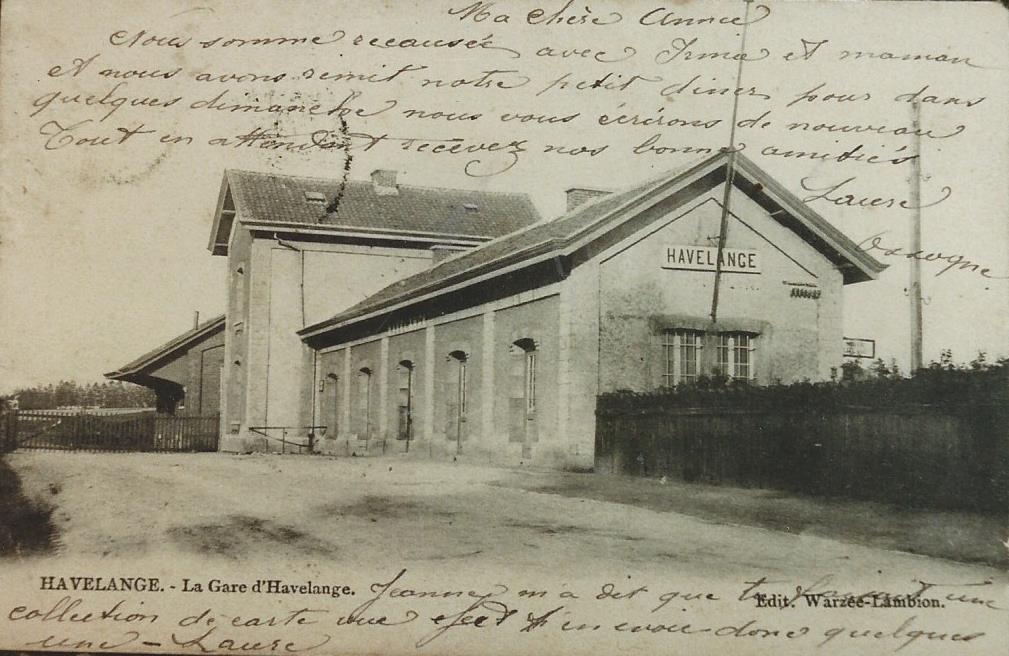 Ma chère Annie
Nous somme recausée avec Irma et maman
et nous avons remit notre petit diner pour dans
quelques dimanche nous vous écrirons de nouveau
Tout en attendant recevez nos bonne amitiés
Laure
HAVELANGE
HAVELANGE. - La Gare d'Havelange.
Edit. Warzée-Lambion.
Jeanne m'a dit que tu une
collection de carte vue donc quelques
une - Laure